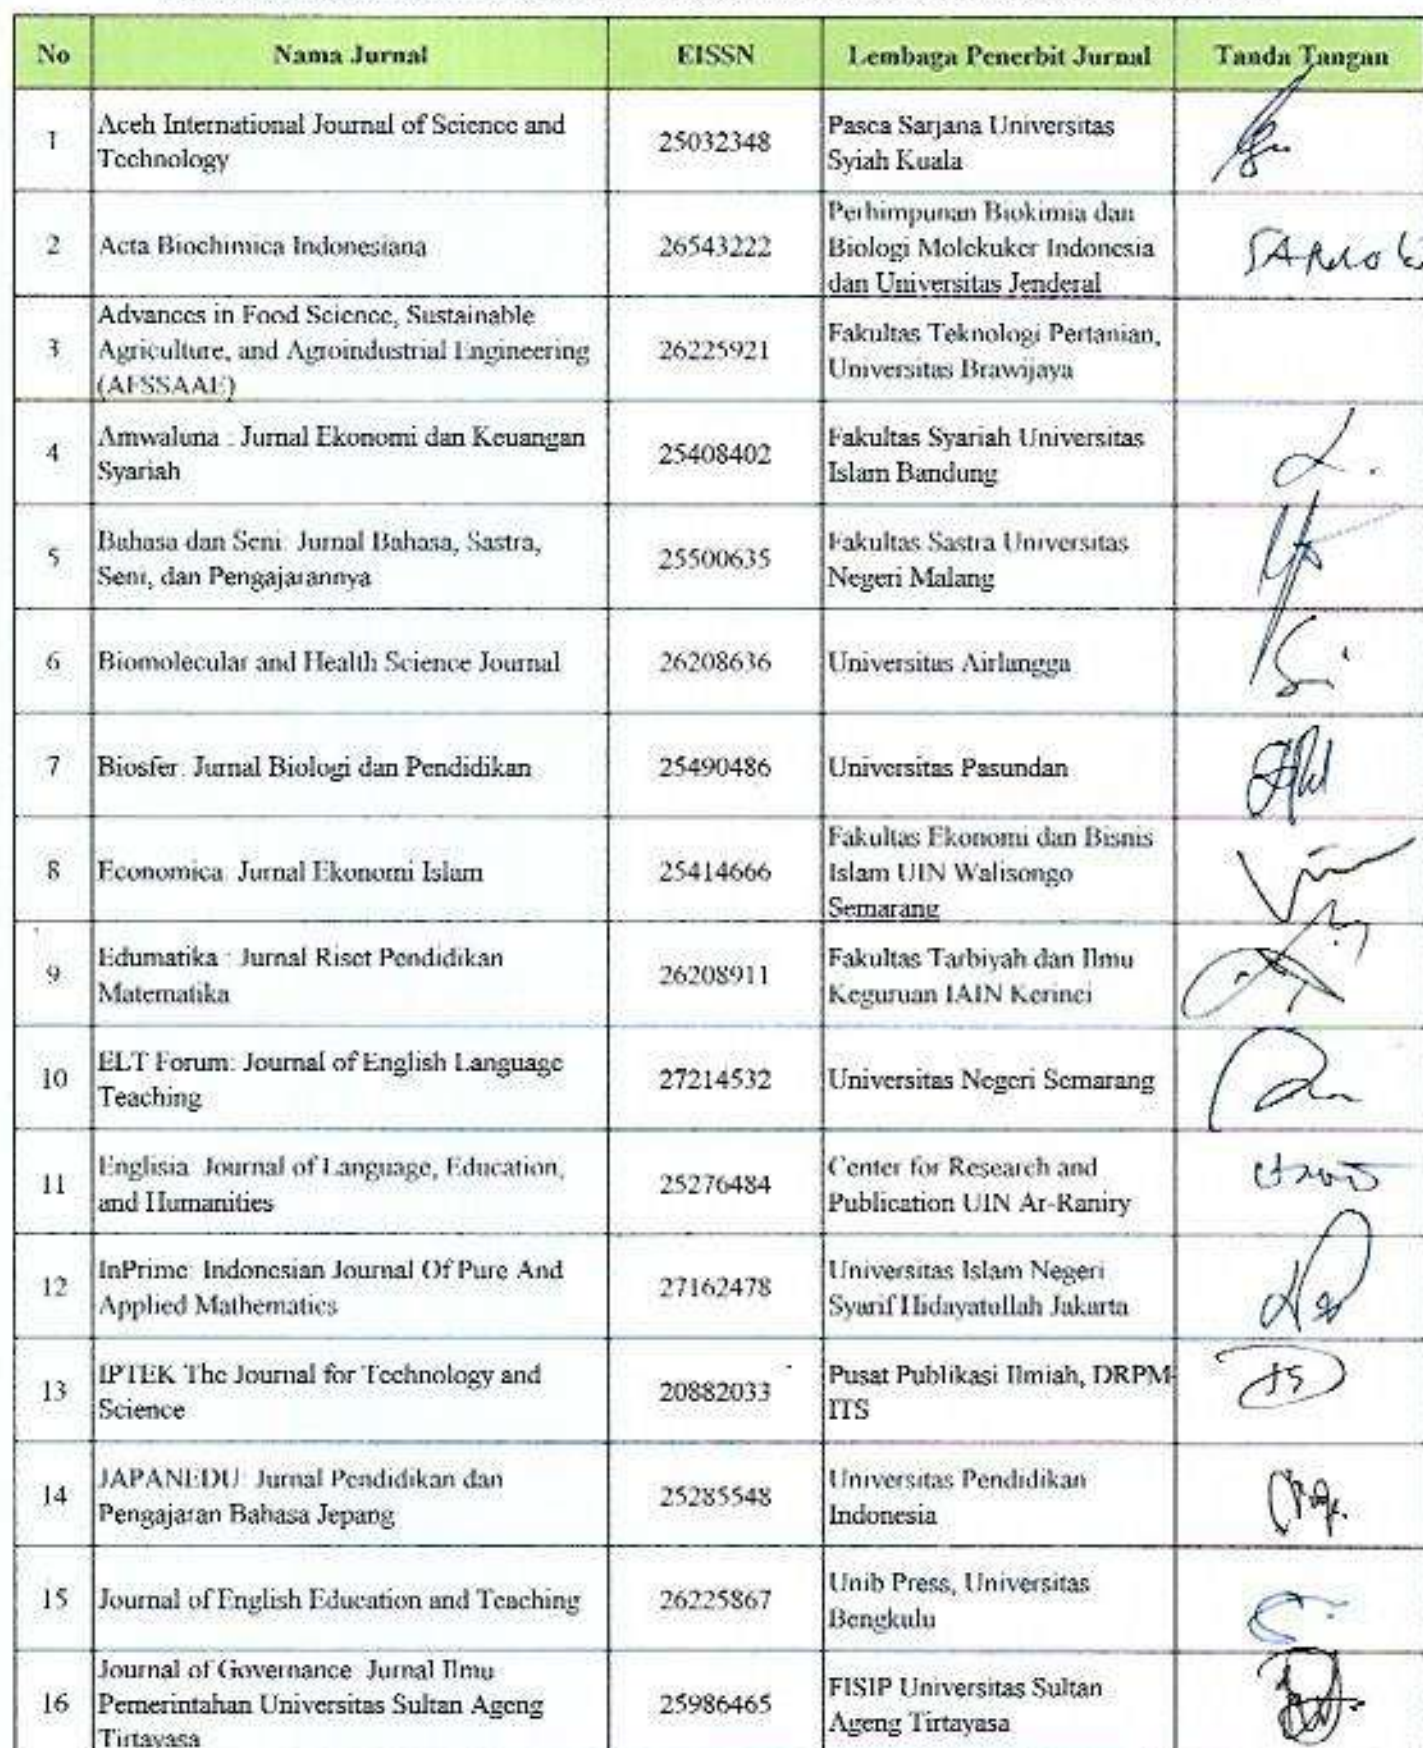 No Nama Jurnal EISSN Lembaga Penerbit Jurnal Tanda Tangan
1 Aceh International Journal of Science and Technology 25032348 Pasca Sarjana Universitas Syiah Kuala
2 Acta Biochimica Indonesiana 26543222 Perhimpunan Biokimia dan Biologi Molekuker Indonesia dan Universitas Jenderal
3 Advances in Food Science, Sustainable Agriculture, and Agroindustrial Engineering (AFSSAAE) 26225921 Fakultas Teknologi Pertanian, Universitas Brawijaya
4 Amwaluna : Jurnal Ekonomi dan Keuangan Syariah 25408402 Fakultas Syariah Universitas Islam Bandung
5 Bahasa dan Seni: Jurnal Bahasa, Sastra, Seni, dan Pengajarannya 25500635 Fakultas Sastra Universitas Negeri Malang
6 Biomolecular and Health Science Journal 26208636 Universitas Airlangga
7 Biosfer: Jurnal Biologi dan Pendidikan 25490486 Universitas Pasundan
8 Economica: Jurnal Ekonomi Islam 25414666 Fakultas Ekonomi dan Bisnis Islam UIN Walisongo Semarang
9 Edumatika : Jurnal Riset Pendidikan Matematika 26208911 Fakultas Tarbiyah dan Ilmu Keguruan IAIN Kerinci
10 ELT Forum: Journal of English Language Teaching 27214532 Universitas Negeri Semarang
11 Englisia: Journal of Language, Education, and Humanities 25276484 Center for Research and Publication UIN Ar-Raniry
12 InPrime: Indonesian Journal Of Pure And Applied Mathematics 27162478 Universitas Islam Negeri Syarif Hidayatullah Jakarta
13 IPTEK The Journal for Technology and Science 20882033 Pusat Publikasi Ilmiah, DRPM-ITS
14 JAPANEDU: Jurnal Pendidikan dan Pengajaran Bahasa Jepang 25285548 Universitas Pendidikan Indonesia
15 Journal of English Education and Teaching 26225867 Unib Press, Universitas Bengkulu
16 Journal of Governance: Jurnal Ilmu Pemerintahan Universitas Sultan Ageng Tirtayasa 25986465 FISIP Universitas Sultan Ageng Tirtayasa